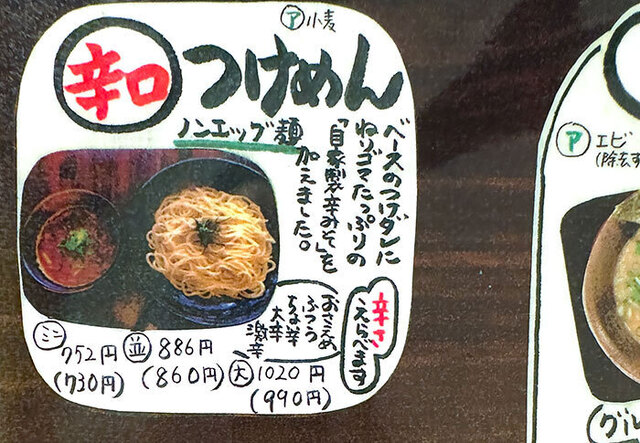 ア 小麦
辛口 つけめん
ノンエッグ麺
ベースのつけダレに
ねりゴマたっぷりの
「自家製辛みそ」を
加えました。
辛さ
えらべます
おさえめ
ふつう
ちょい辛
大辛
激辛
ミニ 752円
(730円)
並 886円
(860円)
大 1020円
(990円)
ア エビ
(除去す
(グル